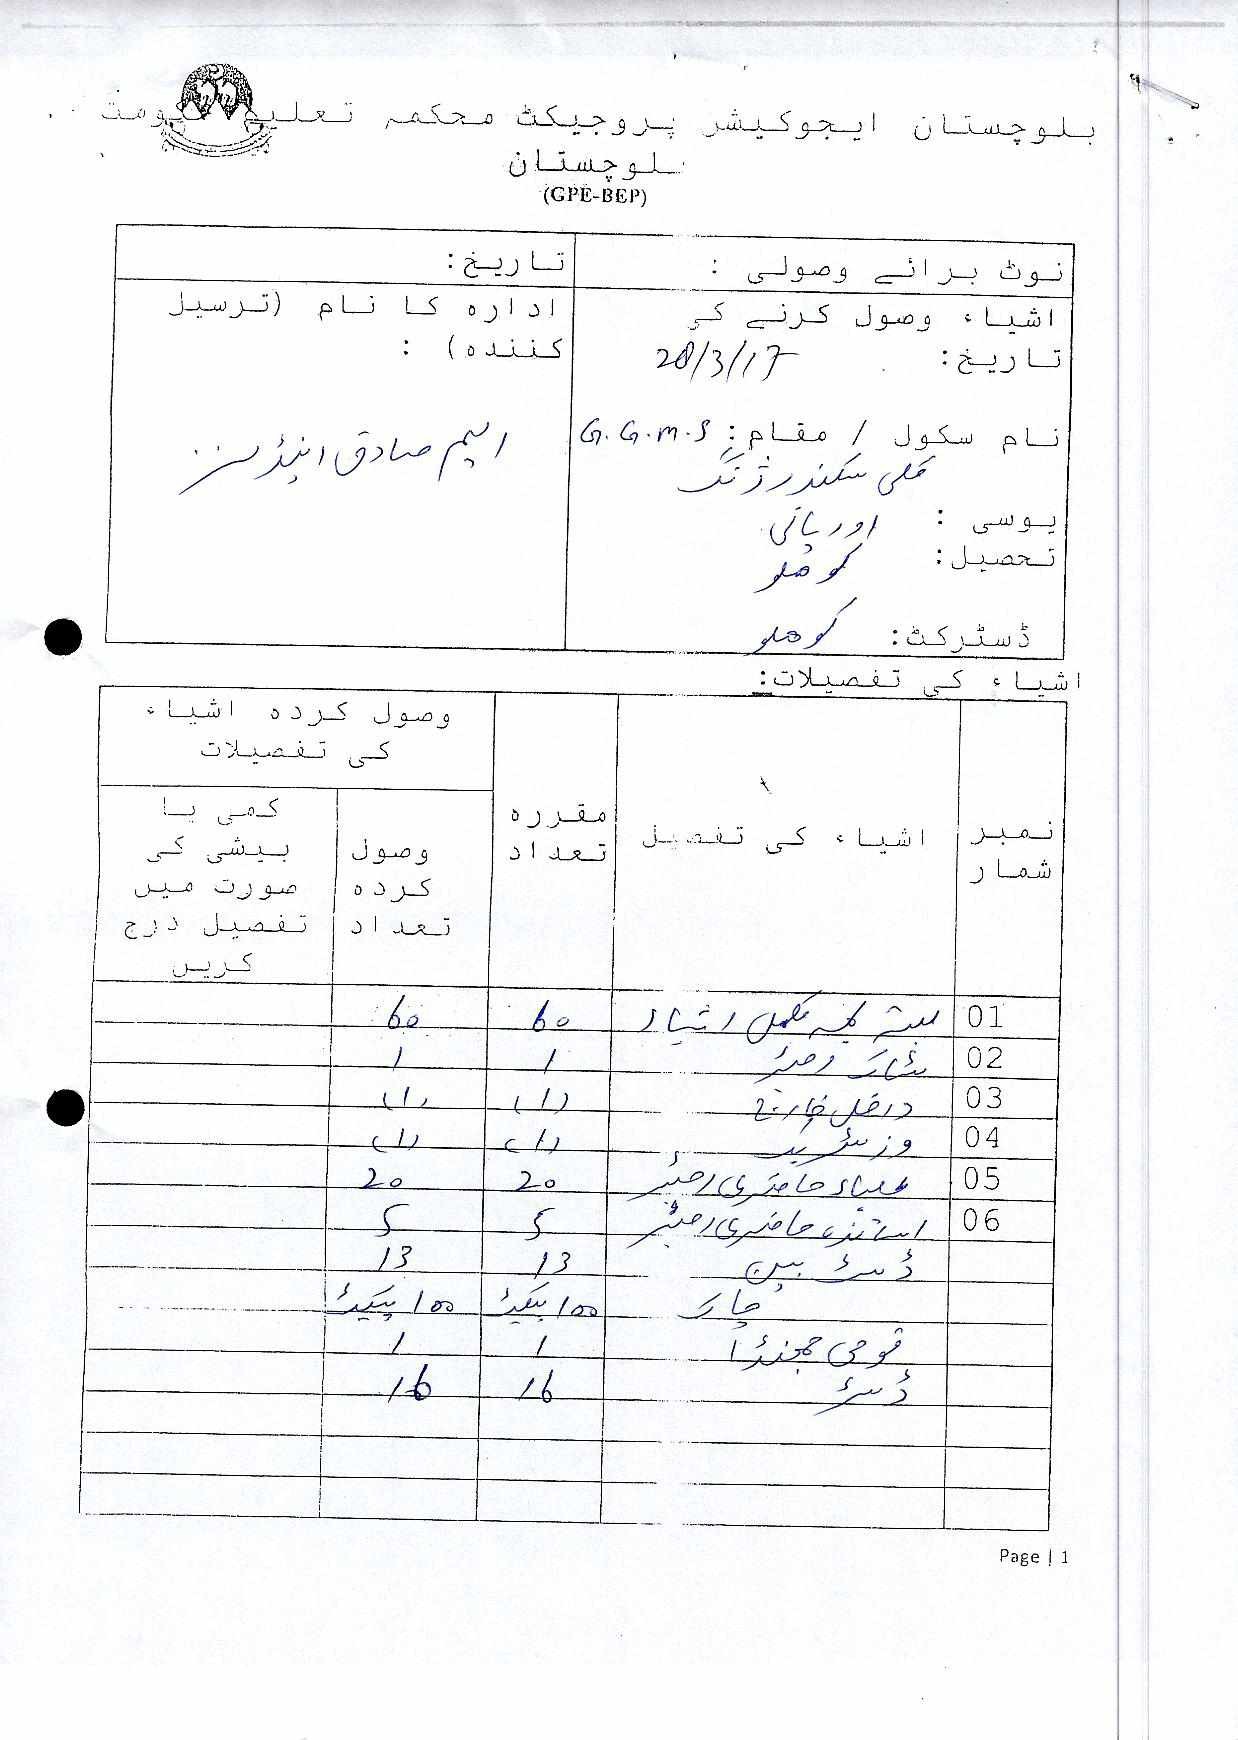 بلوچستان ایجوکیشن پروجیکٹ محکمہ تعلیم حکومت
بلوچستان
(GPE-BEP)
نوٹ برائے وصولی :
تاریخ:
اشیاء وصول کرنے کی
تاریخ: 28/3/17
ادارہ کا نام (ترسیل
کنندہ) :
ایم صادق اینڈ سنز
نام سکول / مقام: G.G.M.S
کلی سکندر ژنگ
یوسی : اوریانی
تحصیل: کوھلو
ڈسٹرکٹ: کوھلو
اشیاء کی تفصیلات:
نمبر شمار
اشیاء کی تفصیل
مقررہ تعداد
وصول کردہ اشیاء
کی تفصیلات
وصول
کردہ
تعداد
کمی یا
بیشی کی
صورت میں
تفصیل درج
کریں
01 بستے بمہ مکمل اشیاء 60 60
02 سٹاک رجسٹر 1 1
03 داخل خارج (1) (1)
04 وزٹر بک (1) (1)
05 طلباء حاضری رجسٹر 20 20
06 اساتذہ حاضری رجسٹر 5 5
ڈسٹ بین 13 13
چاک 100 پیکٹ 100 پیکٹ
قومی جھنڈا 1 1
ڈسٹر 16 16
Page | 1